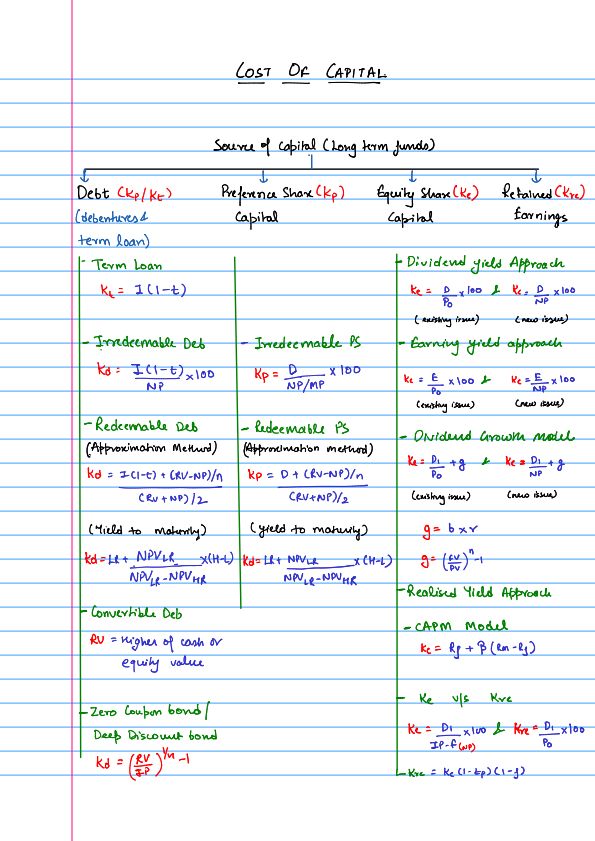 COST OF CAPITAL
Source of Capital (Long term funds)
Debt (Kp/Kt)
(debentures &
term loan)
- Term Loan
Kt = I(1-t)
- Irredeemable Deb
Kd = I(1-t)/NP x100
- Redeemable Deb
(Approximation Method)
Kd = I(1-t) + (RV-NP)/n
(RV+NP)/2
(Yield to maturity)
Kd = LR + NPVLR/NPVLR-NPVHR x(H-L)
- Convertible Deb
RV = Higher of cash or
equity value
- Zero Coupon bond/
Deep Discount bond
Kd = (RV/IP)^1/n -1
Preference Share (Kp)
Capital
- Irredeemable PS
Kp = D/NP/MP x100
- Redeemable PS
(Approximation method)
Kp = D + (RV-NP)/n
(RV+NP)/2
(Yield to maturity)
Kd = LR + NPVLR/NPVLR-NPVHR x(H-L)
Equity Share (Ke)
Capital
Retained (Kre)
Earnings
- Dividend yield Approach
Ke = D/P0 x100 & Ke = D/NP x100
(existing issue) (new issue)
- Earning yield approach
Ke = E/P0 x100 & Ke = E/NP x100
(existing issue) (new issue)
- Dividend Growth model
Ke = D1/P0 + g & Ke = D1/NP + g
(existing issue) (new issue)
g = b x r
g = (FV/PV)^n -1
- Realised Yield Approach
- CAPM Model
Ke = Rf + β(Rm-Rf)
- Ke v/s Kre
Ke = D1/IP-f(NP) x100 & Kre = D1/P0 x100
- Kre = Ke(1-tp)(1-f)